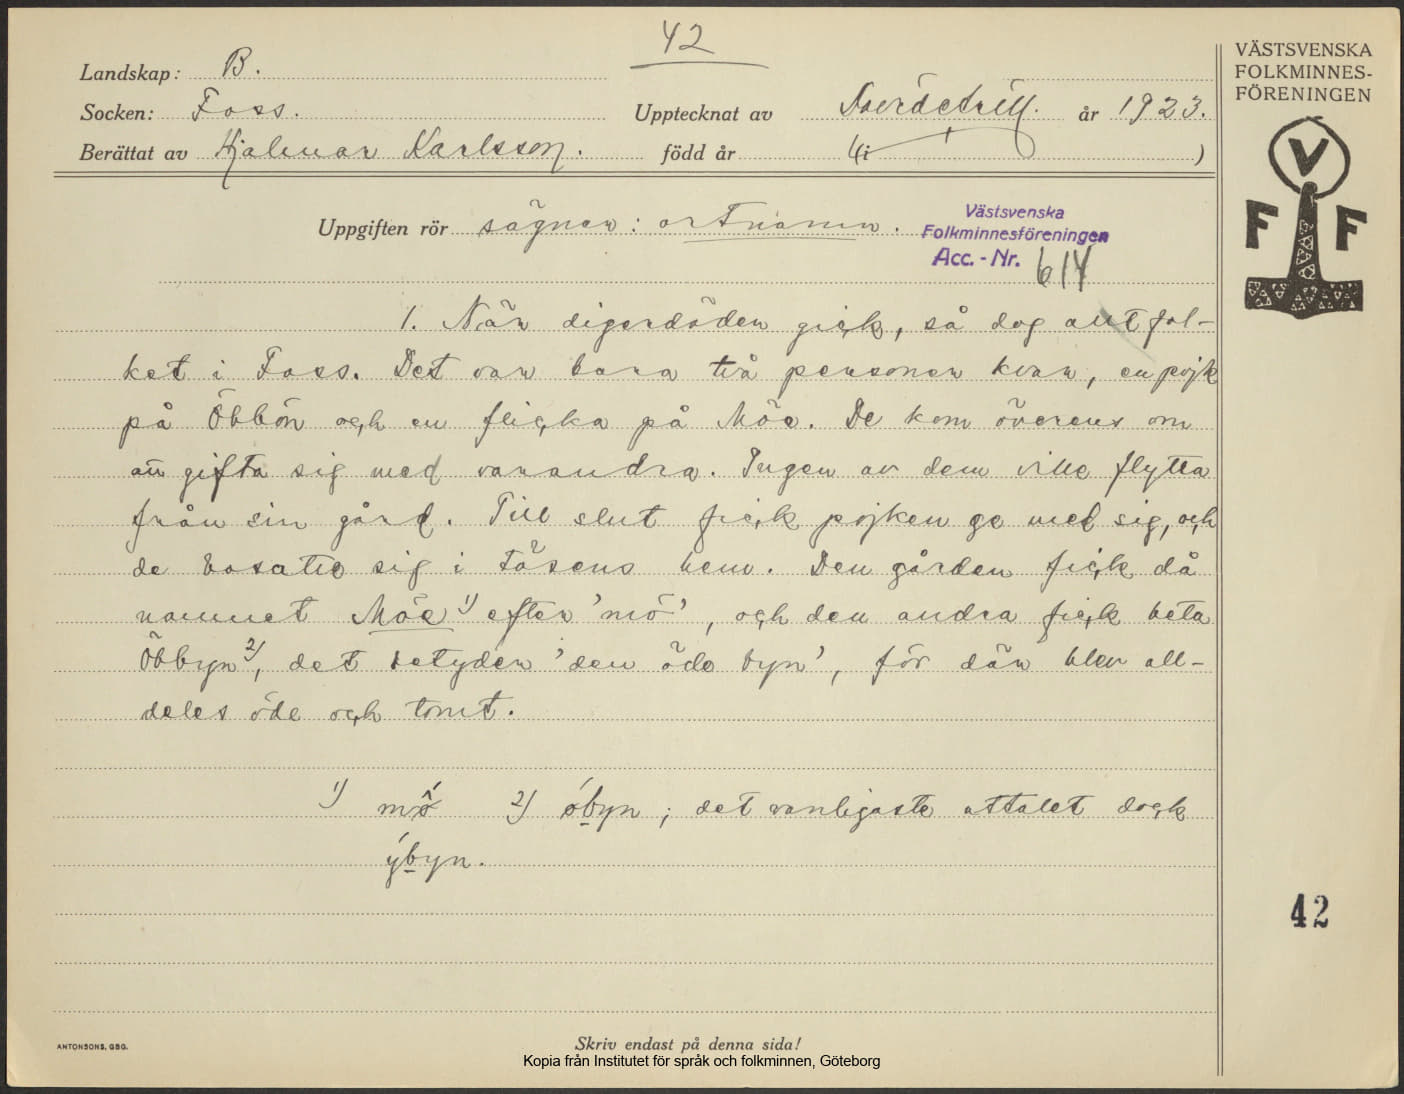 42
Landskap: B.
Socken: Foss.
Upptecknat av år 1923.
Berättat av Hjalmar Karlsson. född år (i )
VÄSTSVENSKA
FOLKMINNES-
FÖRENINGEN
V
F F
Uppgiften rör sägner: ortnamn.
Västsvenska
Folkminnesföreningen
Acc.-Nr. 614
1. När digerdöden gick, så dog allt fol-
ket i Foss. Det var bara två personer kvar, en pojk
på Öbbön och en flicka på Möe. De kom överens om
att gifta sig med varandra. Ingen av dem ville flytta
från sin gård. Till slut fick pojken ge med sig, och
de bosatte sig i tösens hem. Den gården fick då
namnet Möe 1) efter 'mö', och den andra fick heta
Öbbyn 2), det betyder 'den öde byn', för där blev all-
deles öde och tomt.
1) mô 2) óbyn; det vanligaste uttalet dock
ýbyn.
42
ANTONSONS, GBG.
Skriv endast på denna sida!
Kopia från Institutet för språk och folkminnen, Göteborg